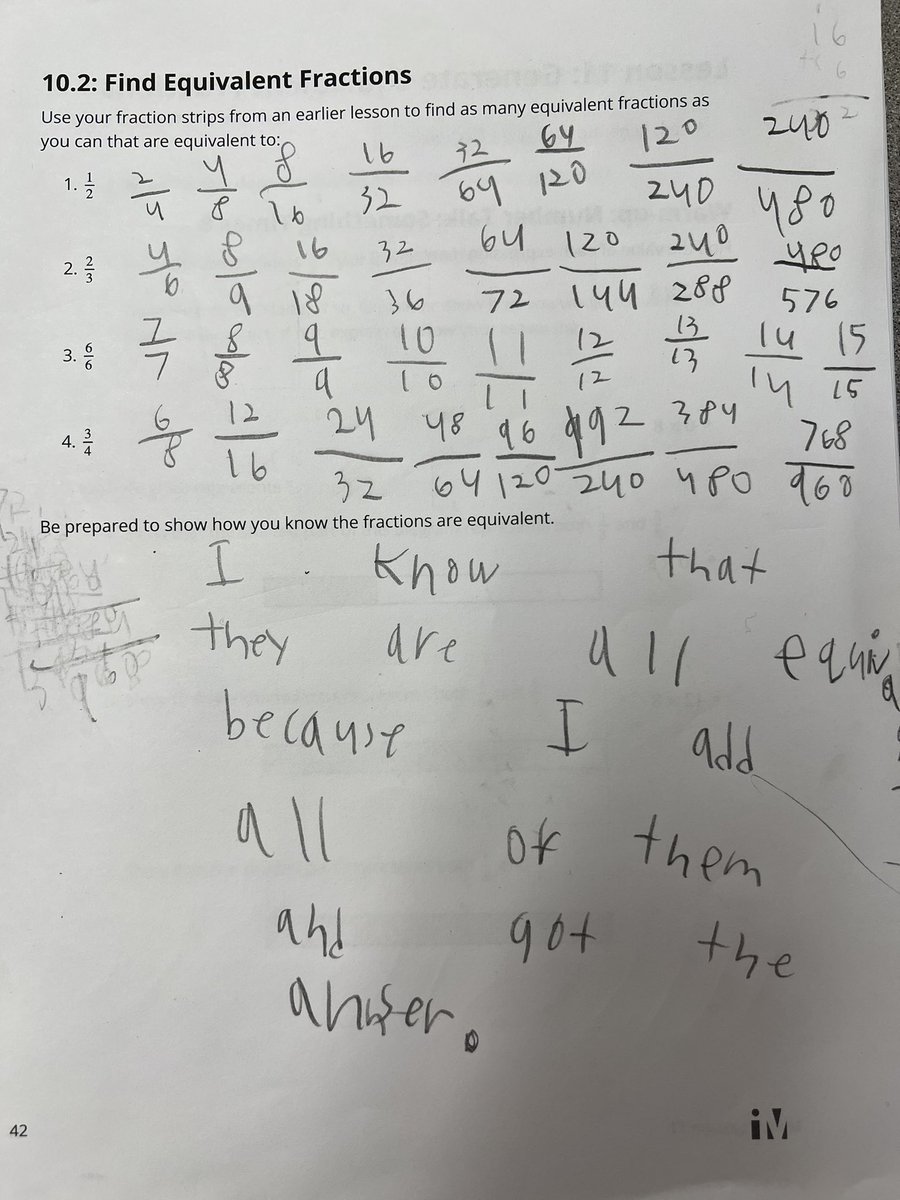 16
6
2
10.2: Find Equivalent Fractions
Use your fraction strips from an earlier lesson to find as many equivalent fractions as
you can that are equivalent to:
1. 1/2 2/4 4/8 8/16 16/32 32/64 64/120 120/240 240/480
2. 2/3 4/6 8/9 16/18 32/36 64/72 120/144 240/288 480/576
3. 6/6 7/7 8/8 9/9 10/10 11/11 12/12 13/13 14/14 15/15
4. 3/4 6/8 12/16 24/32 48/64 96/120 192/240 384/480 768/960
Be prepared to show how you know the fractions are equivalent.
I know that
they are all
because I add
all of them
and got the
answer.
42
iM